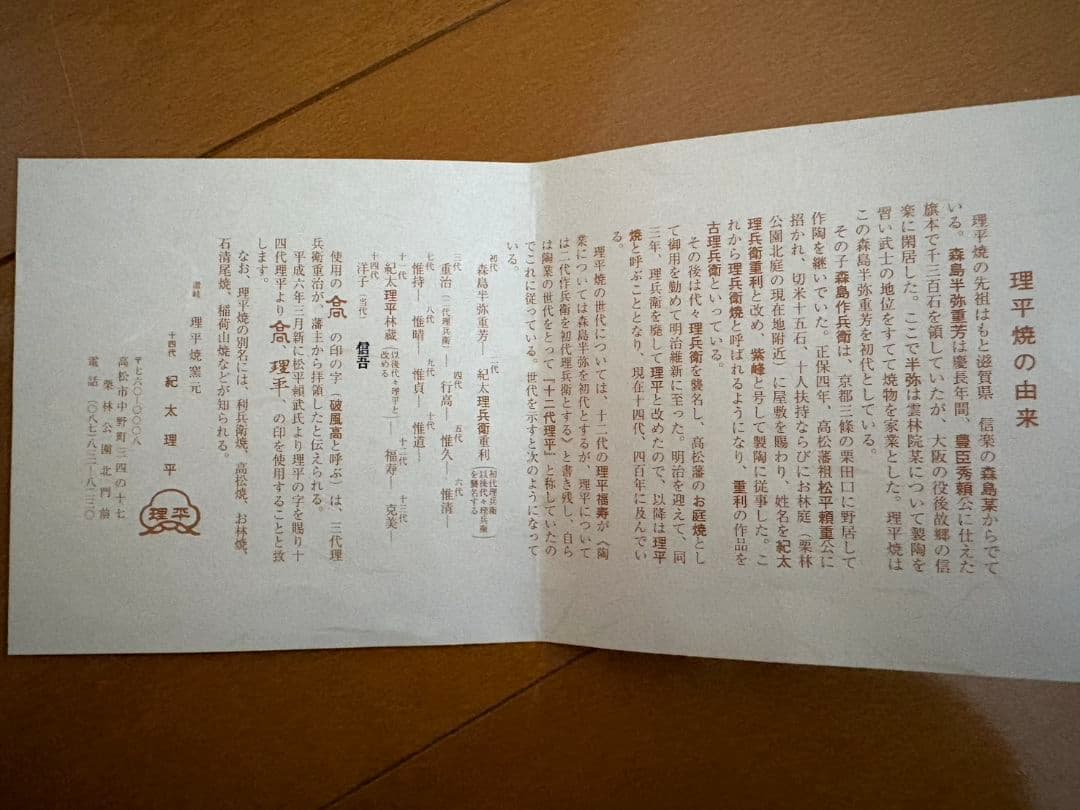 理平焼の由来
理平焼の先祖はもと滋賀県 信楽の森島某からでて
いる。森島半弥重芳は慶長年間、豊臣秀頼公に仕えた
旗本で千三百石を領していたが、大阪の役後故郷の信
楽に閑居した。ここで半弥は雲林院某について製陶を
習い武士の地位をすてて焼物を家業とした。理平焼は
この森島半弥重芳を初代としている。
その子森島作兵衛は、京都三條の栗田口に野居して
作陶を継いでいた。正保四年、高松藩祖松平頼重公に
招かれ、切米十五石、十人扶持ならびにお林庭（栗林
公園北庭の現在地附近）に屋敷を賜わり、姓名を紀太
理兵衛重利と改め、紫峰と号して製陶に従事した。こ
れから理兵衛焼と呼ばれるようになり、重利の作品を
古理兵衛といっている。
その後は代々理兵衛を襲名し、高松藩のお庭焼とし
て御用を勤めて明治維新に至った。明治を迎えて、同
三年、理兵衛を廃して理平と改めたので、以降は理平
焼と呼ぶこととなり、現在十四代、四百年に及んでい
る。
理平焼の世代については、十二代の理平福寿が〈陶
業については森島半弥を初代とするが、理平について
は二代作兵衛を初代理兵衛とする〉と書き残し、自ら
は陶業の世代をとって『十二代理平』と称していたの
でこれに従っている。世代を示すと次のようになって
いる。
初代 二代
森島半弥重芳― 紀太理兵衛重利（初代理兵衛以後代々理兵衛を襲名する）
三代 四代 五代 六代
重治（二代理兵衛）― 行高― 惟久― 惟清―
七代 八代 九代 十代
惟持― 惟晴― 惟貞― 惟道―
十一代 十二代 十三代
紀太理平林蔵（以後代々理平と改める）― 福寿― 克美―
十四代
洋子（当代） 信吾
使用の 高 の印の字（破風高と呼ぶ）は、三代理
兵衛重治が、藩主から拝領したと伝えられる。
平成六年三月新に松平頼武氏より理平の字を賜り十
四代理平より 高 理平、の印を使用することと致
します。
なお、理平焼の別名には、利兵衛焼、高松焼、お林焼、
石清尾焼、稲荷山焼などが知られる。
讃岐 理平焼窯元
十四代 紀太理平
理平
〒七六〇―〇〇〇八
高松市中野町三四の十七
栗林公園北門前
電話（〇八七―八三―八三〇）